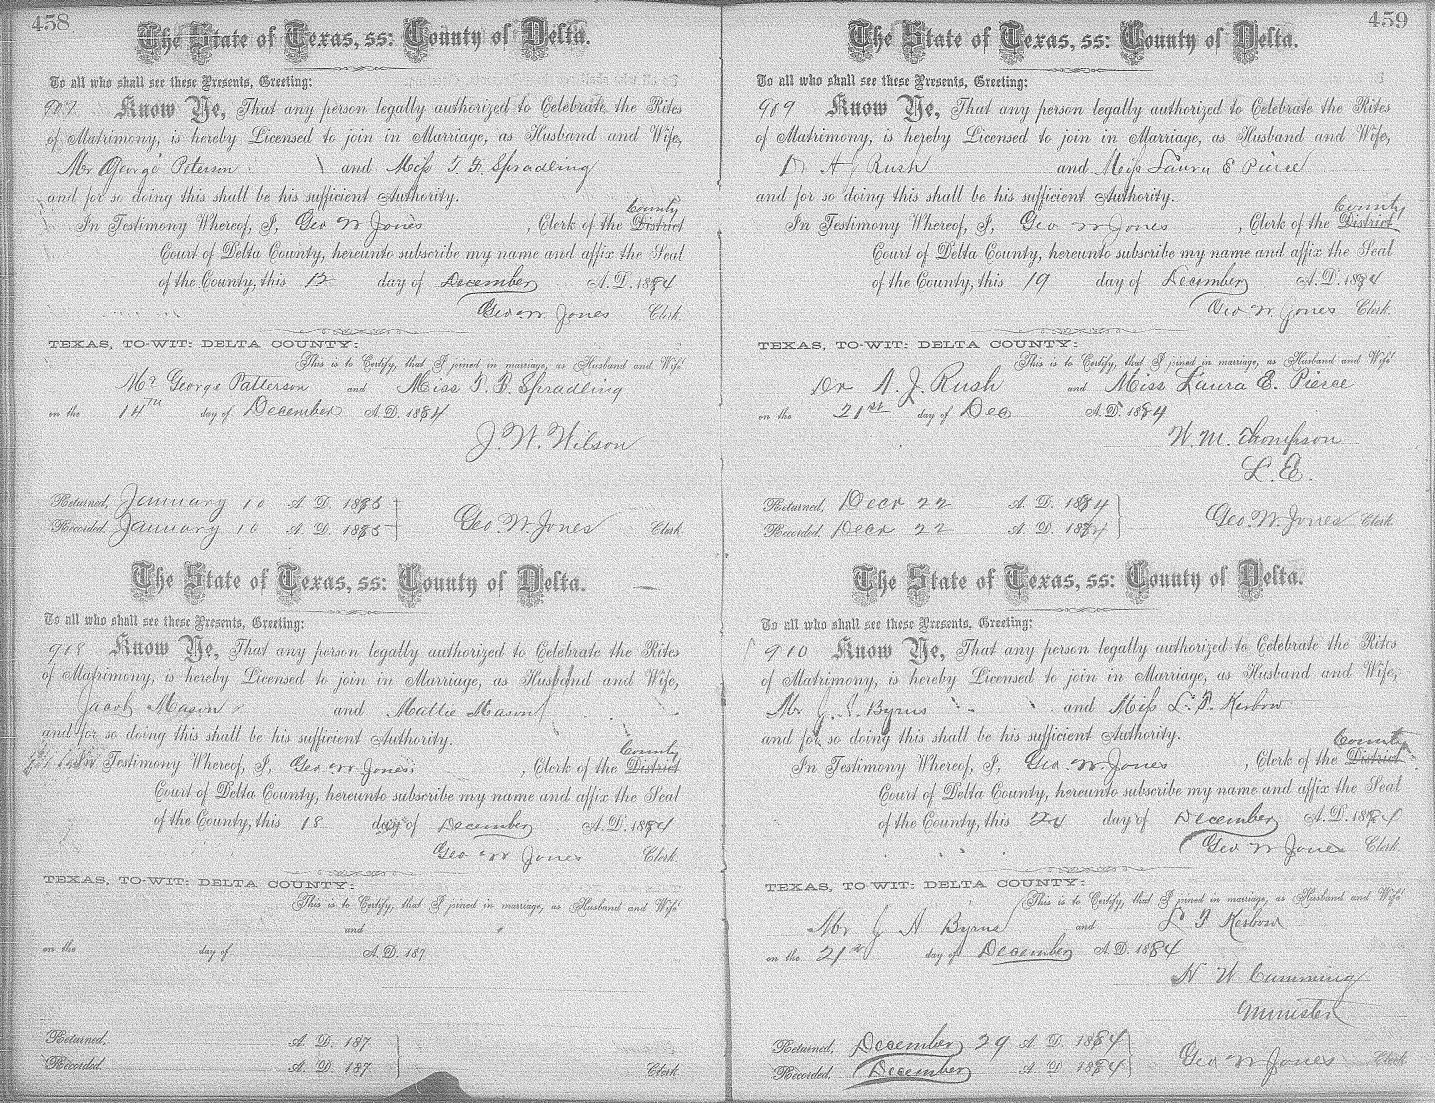 458
The State of Texas, ss: County of Delta.
To all who shall see these Presents, Greeting:
907 Know Ye, That any person legally authorized to Celebrate the Rites
of Matrimony, is hereby Licensed to join in Marriage, as Husband and Wife,
Mr George Peterson and Miss F. F. Spradling
and for so doing this shall be his sufficient Authority.
In Testimony Whereof, I, Geo W Jones, Clerk of the District County
Court of Delta County, hereunto subscribe my name and affix the Seal
of the County, this 12 day of December A.D. 1884
Geo W Jones Clerk.
TEXAS, TO-WIT: DELTA COUNTY:
This is to Certify, that I joined in marriage, as Husband and Wife
Mr George Patterson and Miss F. F. Spradling
on the 14TH day of December A.D. 1884
J. W. Wilson
Returned, January 10 A. D. 1885
Recorded, January 10 A. D. 1885
Geo. W. Jones Clerk
The State of Texas, ss: County of Delta.
To all who shall see these Presents, Greeting:
908 Know Ye, That any person legally authorized to Celebrate the Rites
of Matrimony, is hereby Licensed to join in Marriage, as Husband and Wife,
Jacob Mason and Mallie Mason
and for so doing this shall be his sufficient Authority.
In Testimony Whereof, I, Geo W Jones, Clerk of the District County
Court of Delta County, hereunto subscribe my name and affix the Seal
of the County, this 18 day of December A.D. 1884
Geo W Jones Clerk.
TEXAS, TO-WIT: DELTA COUNTY:
This is to Certify, that I joined in marriage, as Husband and Wife
and
on the day of A.D. 187
Returned, A. D. 187
Recorded, A. D. 187
Clerk
459
The State of Texas, ss: County of Delta.
To all who shall see these Presents, Greeting:
909 Know Ye, That any person legally authorized to Celebrate the Rites
of Matrimony, is hereby Licensed to join in Marriage, as Husband and Wife,
Dr A J Rush and Miss Laura E Pierce
and for so doing this shall be his sufficient Authority.
In Testimony Whereof, I, Geo W Jones, Clerk of the District County
Court of Delta County, hereunto subscribe my name and affix the Seal
of the County, this 19 day of December A.D. 1884
Geo W. Jones Clerk.
TEXAS, TO-WIT: DELTA COUNTY:
This is to Certify, that I joined in marriage, as Husband and Wife
Dr A. J. Rush and Miss Laura E. Pierce
on the 21st day of Dec A.D. 1884
W. M. Thompson
L. E.
Returned, Decr 22 A. D. 1884
Recorded, Decr 22 A. D. 1884
Geo. W. Jones Clerk
The State of Texas, ss: County of Delta.
To all who shall see these Presents, Greeting:
910 Know Ye, That any person legally authorized to Celebrate the Rites
of Matrimony, is hereby Licensed to join in Marriage, as Husband and Wife,
Mr Byrns and Miss L. F. Kesbow
and for so doing this shall be his sufficient Authority.
In Testimony Whereof, I, Geo W. Jones, Clerk of the District County
Court of Delta County, hereunto subscribe my name and affix the Seal
of the County, this day of December A.D. 1884
Geo W Jones Clerk.
TEXAS, TO-WIT: DELTA COUNTY:
This is to Certify, that I joined in marriage, as Husband and Wife
Mr J H Byrns and L F Kesbow
on the 21st day of December A.D. 1884
H W Cumming
Minister
Returned, December 29 A. D. 1884
Recorded, December A. D. 1884
Geo W Jones Clerk